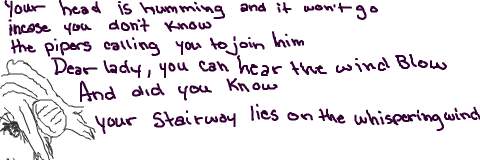 Your head is humming and it won't go
incase you don't know
the pipers calling you to join him
Dear lady, you can hear the wind Blow
And did you know
your Stairway lies on the whispering wind